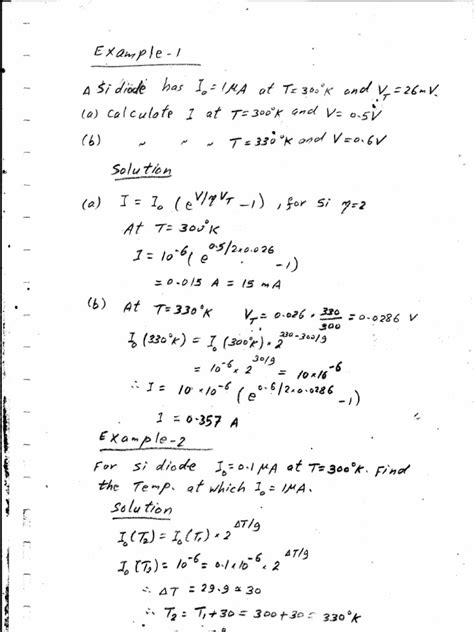 Example-1
A Si diode has I₀ = 1 μA at T = 300°K and V_T = 26 mV.
(a) Calculate I at T = 300°K and V = 0.5V
(b) " " " T = 330°K and V = 0.6V
Solution
(a) I = I₀ (e^(V/ηV_T) - 1), for Si η = 2
At T = 300°K
I = 10⁻⁶ (e^(0.5/2×0.026) - 1)
= 0.015 A = 15 mA
(b) At T = 330°K V_T = 0.026 × 330/300 = 0.0286 V
I₀(330°K) = I₀(300°K) × 2^(330-300/9)
= 10⁻⁶ × 2^(30/9) = 10×10⁻⁶
∴ I = 10×10⁻⁶ (e^(0.6/2×0.0286) - 1)
I = 0.357 A
Example-2
For Si diode I₀ = 0.1 μA at T = 300°K. Find
the Temp. at which I₀ = 1 μA.
Solution
I₀(T₂) = I₀(T₁) × 2^(ΔT/9)
I₀(T₂) = 10⁻⁶ = 0.1×10⁻⁶ × 2^(ΔT/9)
∴ ΔT = 29.9 ≅ 30
∴ T₂ = T₁ + 30 = 300 + 30 = 330°K